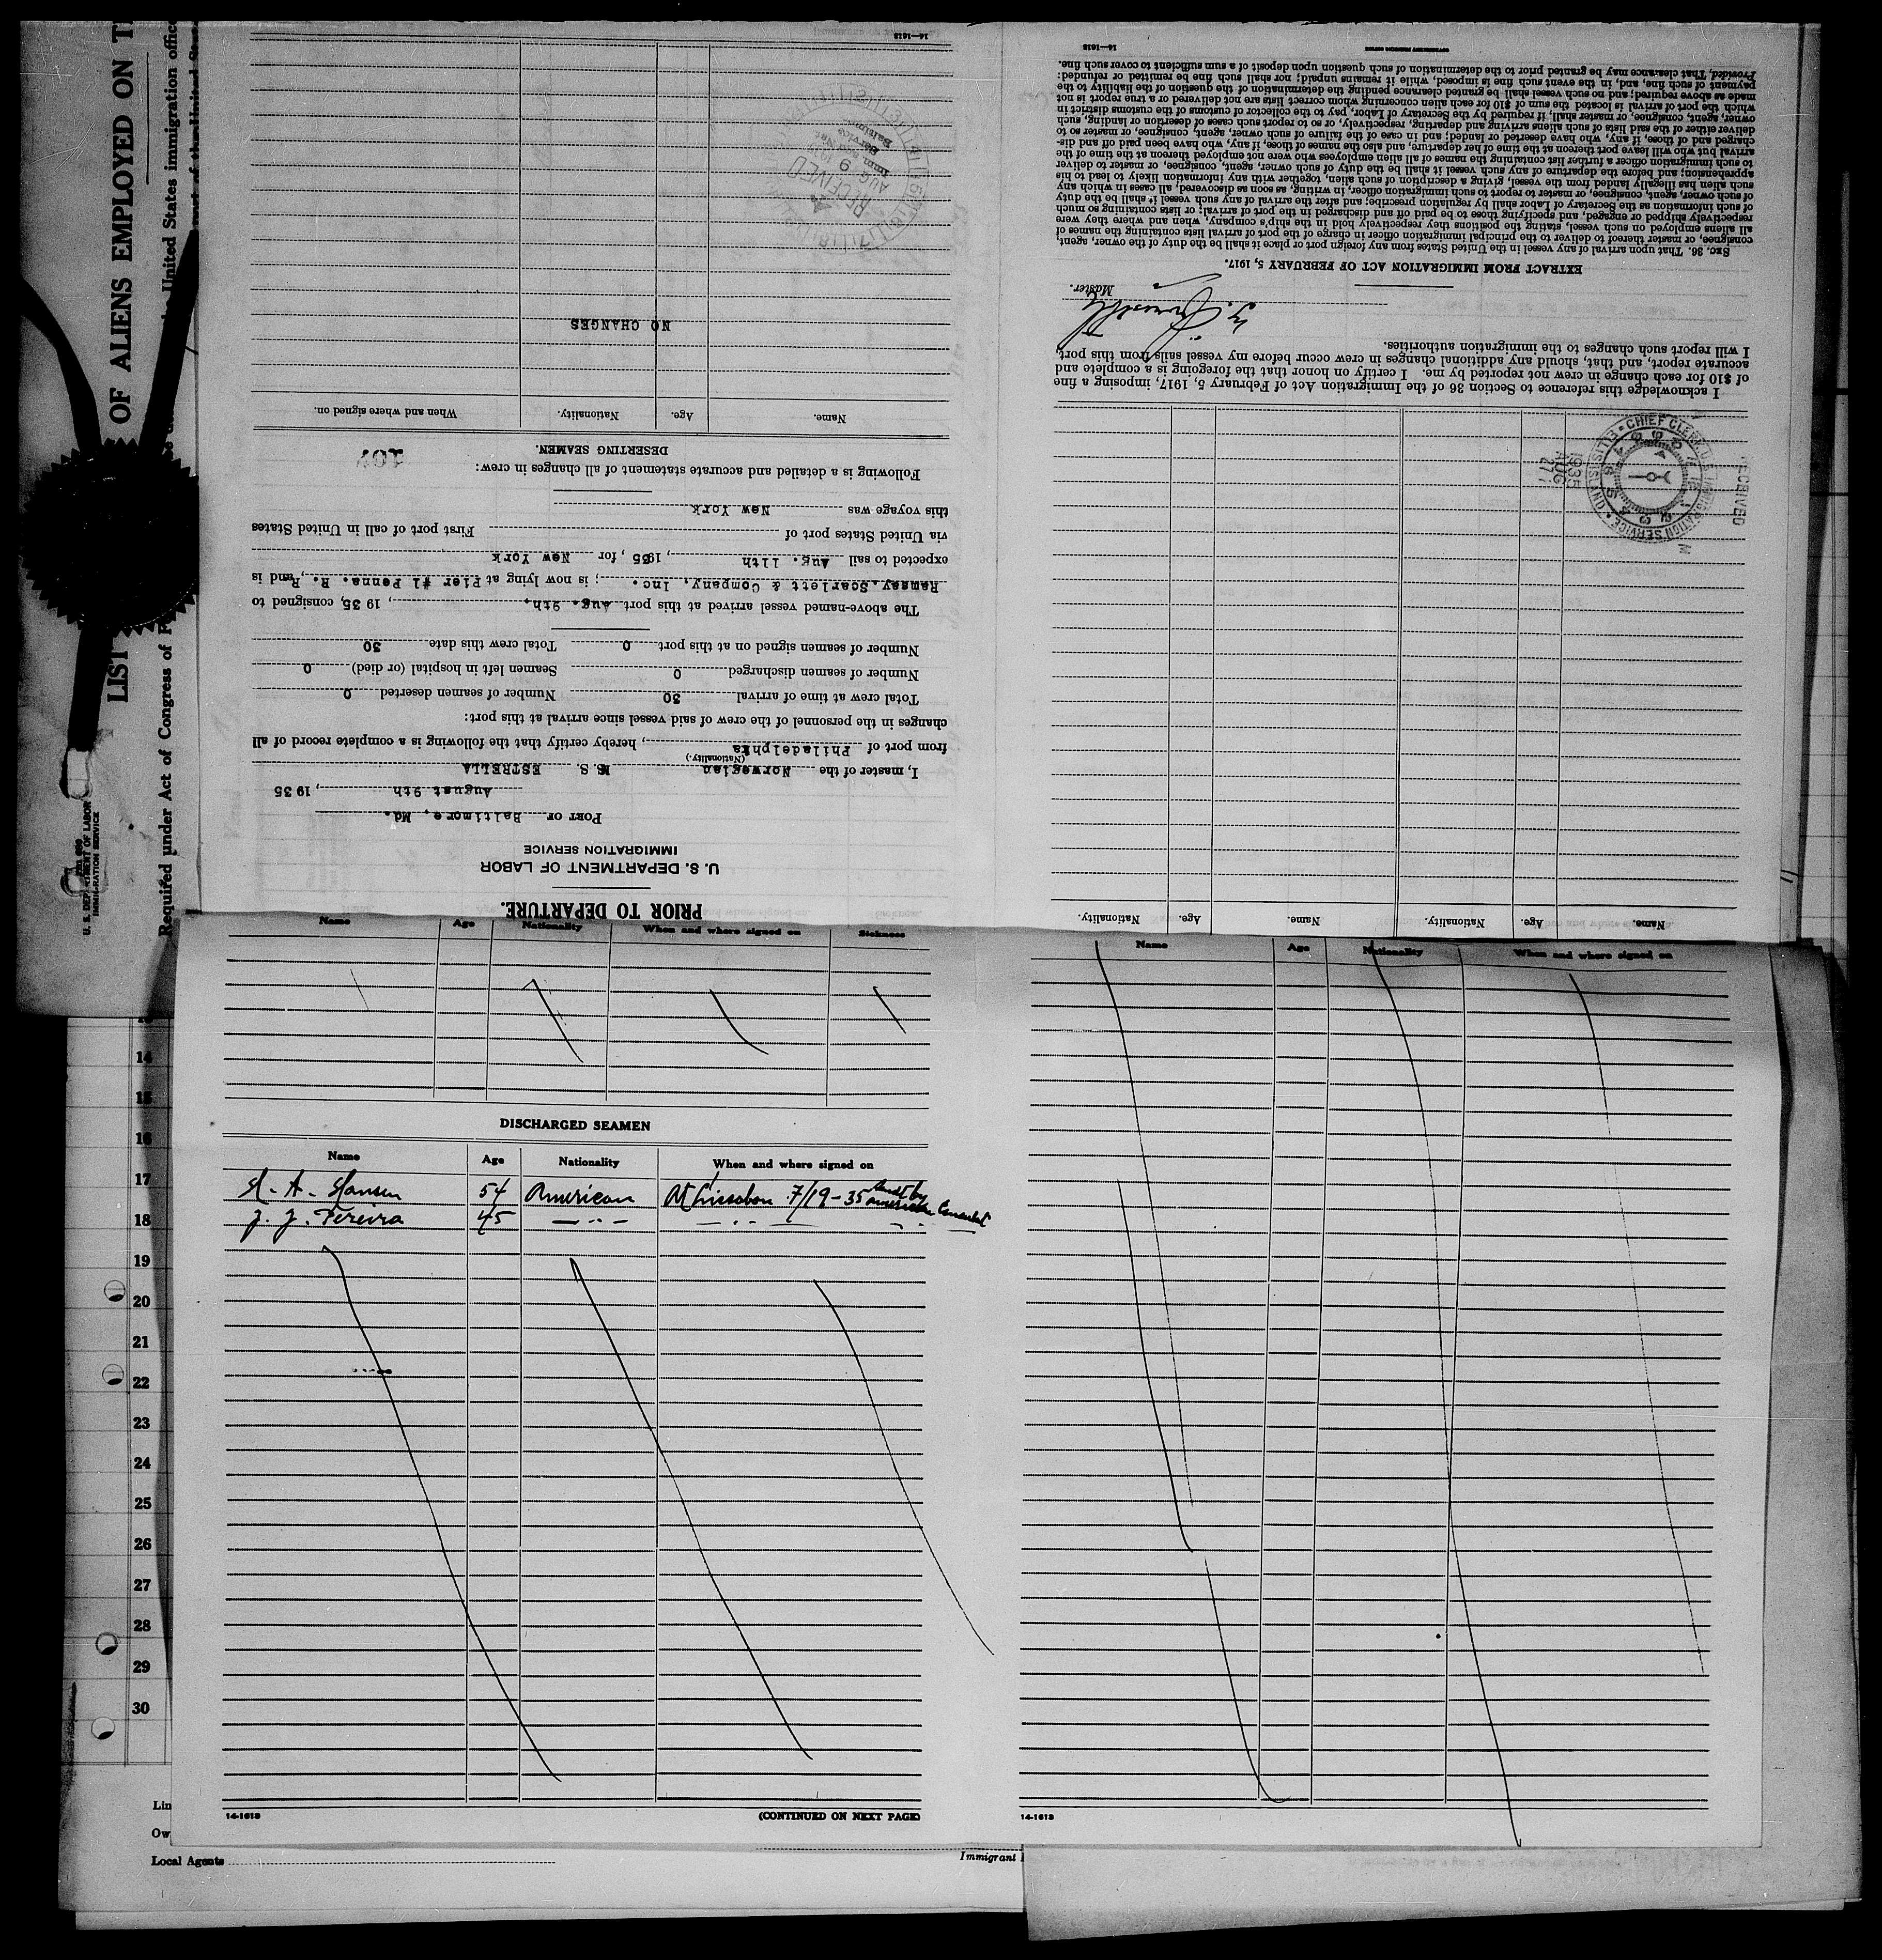 LIST OF ALIENS EMPLOYED ON T
Required under Act of Congress of
United States immigration offic
U. S. DEPARTMENT OF LABOR
IMMIGRATION SERVICE
PRIOR TO DEPARTURE.
U. S. DEPARTMENT OF LABOR
IMMIGRATION SERVICE
PORT OF Baltimore, Md.
August 9th, 1935
I, master of the Norwegian M.S. ESTRELLA
(Nationality.)
from port of Philadelphia, hereby certify that the following is a complete record of all
changes in the personnel of the crew of said vessel since arrival at this port:
Total crew at time of arrival 30 Number of seamen deserted 0
Number of seamen discharged 0 Seamen left in hospital (or died) 0
Number of seamen signed on at this port 0 Total crew this date 30
The above-named vessel arrived at this port Aug. 9th, 1935, consigned to
Ramsay, Scarlett & Company, Inc. ; is now lying at Pier #1 Penna. R. R. and is
expected to sail Aug. 11th, 1935, for New York
via United States port of First port of call in United States
this voyage was New York
Following is a detailed and accurate statement of all changes in crew:
107
DESERTING SEAMEN.
Name. Age. Nationality. When and where signed on.
NO CHANGES
RECEIVED
AUG 9
14—1613
Name. Age. Nationality. Name. Age. Nationality.
RECEIVED
CHIEF CLERK U.S. IMMIGRATION SERVICE
1935 AUG 27
I acknowledge this reference to Section 36 of the Immigration Act of February 5, 1917, imposing a fine
of $10 for each change in crew not reported by me. I certify on honor that the foregoing is a complete and
accurate report, and that, should any additional changes in crew occur before my vessel sails from this port,
I will report such changes to the immigration authorities.
Master.
EXTRACT FROM IMMIGRATION ACT OF FEBRUARY 5, 1917.
SEC. 36. That upon arrival of any vessel in the United States from any foreign port or place it shall be the duty of the owner, agent,
consignee, or master thereof to deliver to the principal immigration officer in charge of the port of arrival lists containing the names of
all aliens employed on such vessel, stating the positions they respectively hold in the ship's company, when and where they were
respectively shipped or engaged, and specifying those to be paid off and discharged in the port of arrival; or lists containing so much
of such information as the Secretary of Labor shall by regulation prescribe; and after the arrival of any such vessel it shall be the duty
of such owner, agent, consignee, or master to report to such immigration officer, in writing, as soon as discovered, all cases in which any
such alien has illegally landed from the vessel, giving a description of such alien, together with any information likely to lead to his
apprehension; and before the departure of any such vessel it shall be the duty of such owner, agent, consignee, or master to deliver
to such immigration officer a further list containing the names of all alien employees who were not employed thereon at the time of the
arrival but who will leave port thereon at the time of her departure, and also the names of those, if any, who have been paid off and dis-
charged and of those, if any, who have deserted or landed; and in case of the failure of such owner, agent, consignee, or master so to
deliver either of the said lists of such aliens arriving and departing, respectively, or so to report such cases of desertion or landing, such
owner, agent, consignee, or master shall, if required by the Secretary of Labor, pay to the collector of customs of the customs district in
which the port of arrival is located the sum of $10 for each alien concerning whom correct lists are not delivered or a true report is not
made as above required; and no such vessel shall be granted clearance pending the determination of the question of the liability to the
payment of such fine, and, in the event such fine is imposed, while it remains unpaid; nor shall such fine be remitted or refunded:
Provided, That clearance may be granted prior to the determination of such question upon deposit of a sum sufficient to cover such fine.
14—1613
Name Age Nationality When and where signed on Sickness
DISCHARGED SEAMEN
Name Age Nationality When and where signed on
H. A. Hansen 54 American At Lissabon 7/19-35 sent by American Consulat
J. J. Pereira 45 — " — — " —
14-1613
(CONTINUED ON NEXT PAGE)
Name Age Nationality When and where signed on
14-1613
14
15
16
17
18
19
20
21
22
23
24
25
26
27
28
29
30
Lin
Ow
Local Agents
Immigrant